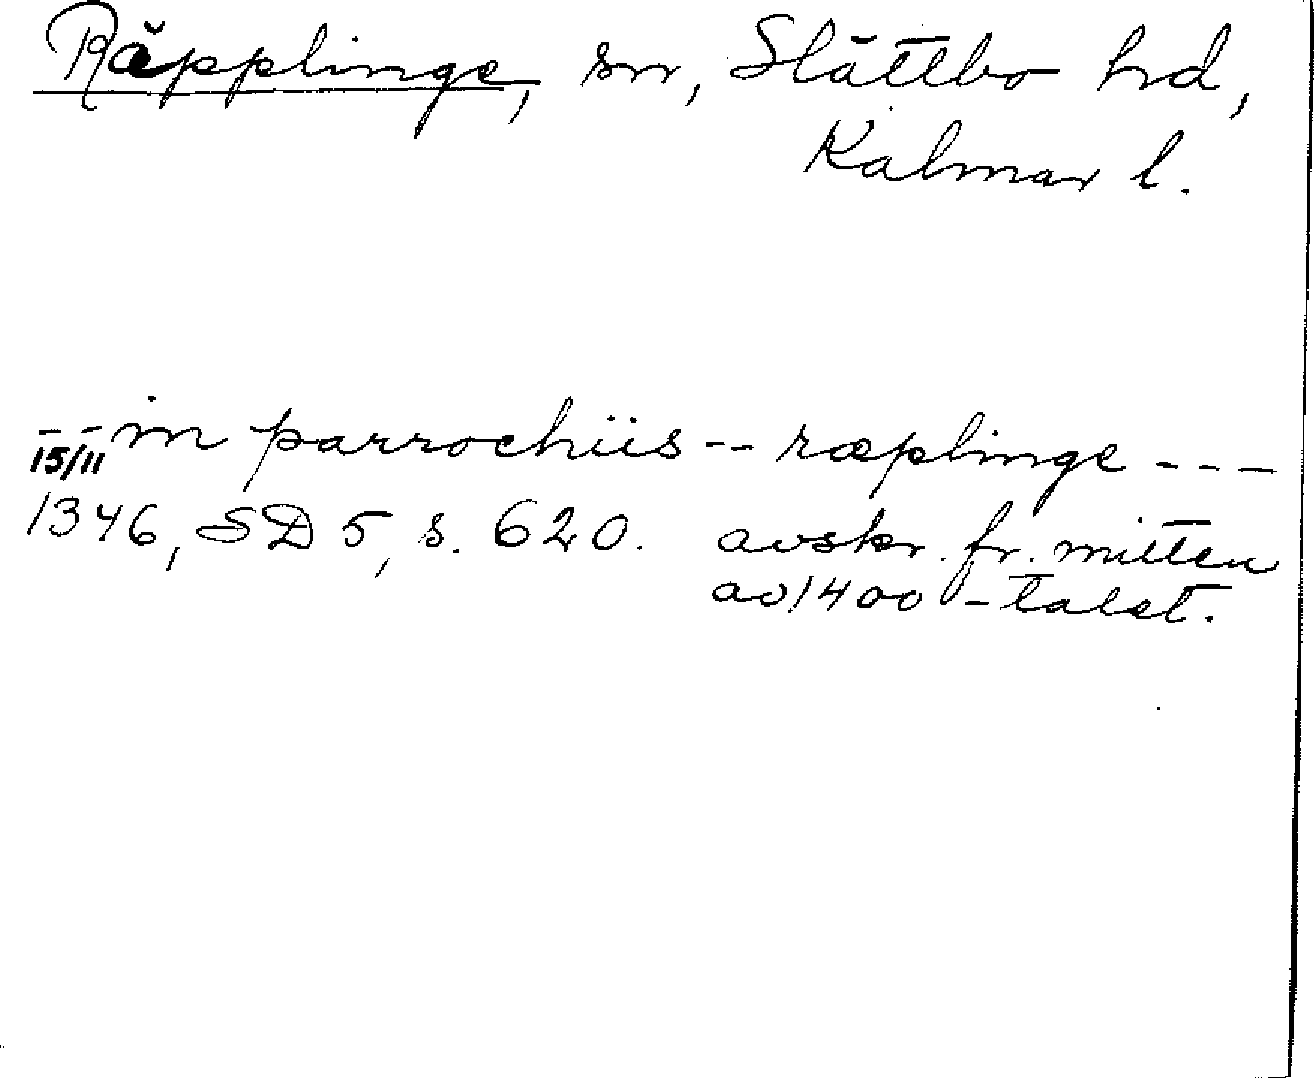 Räpplinge, sn, Slättbo hd,
Kalmar l.
-- in parrochiis -- ræplinge ---
15/11
1346, SD 5, s. 620. avskr. fr. mitten
av 1400-talet.